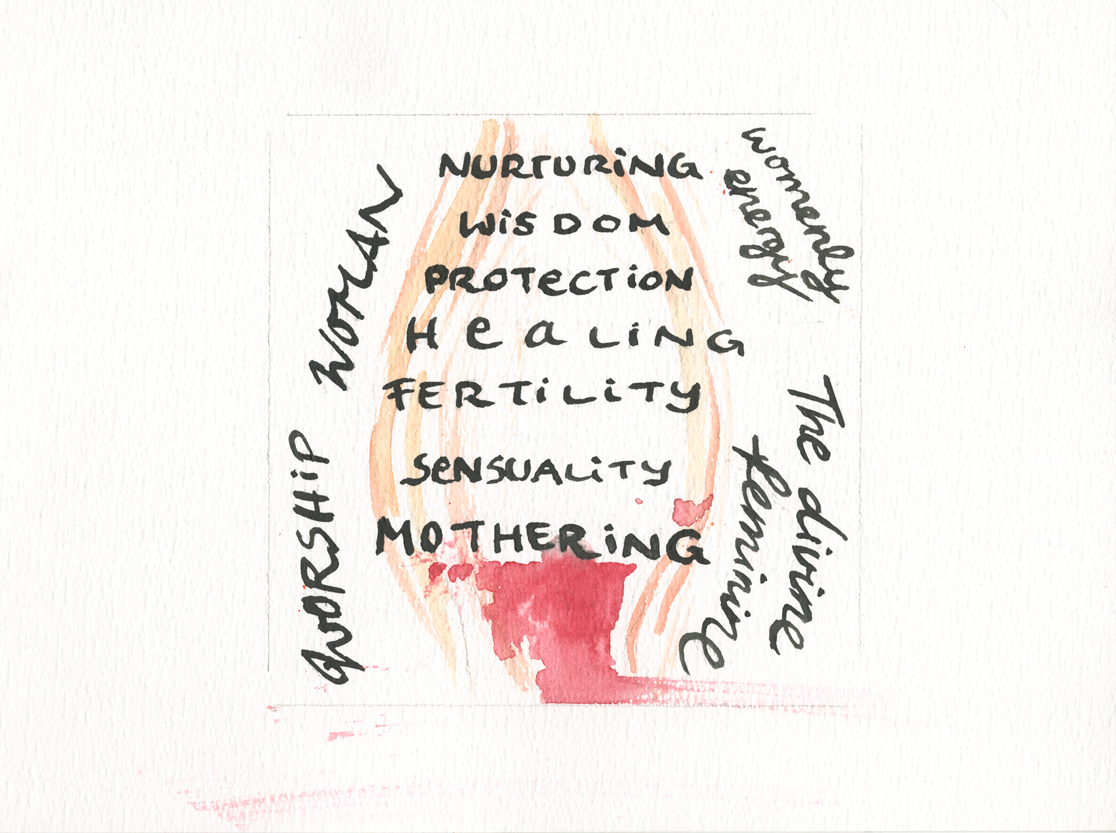 WORSHIP WOMAN
NURTURiNG
WiSDOM
PROTeCTiON
HeaLiNG
FERTiLiTY
SeNSUALiTY
MOTHERiNG
womenly
energy
The divine
feminine